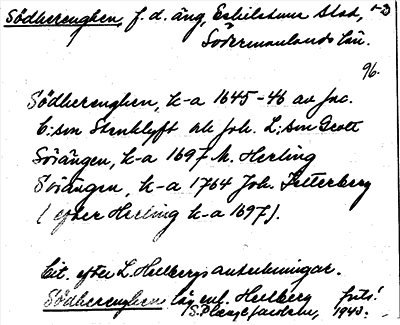 Södherenghen, f. d. äng, Eskilstuna stad, -D
Södermanlands län.
96.
Södherenghen, k-a 1645-46 av Jac.
C:son Stenklyft och Joh. L:son Grott
Sörängen, k-a 1697 M. Herling
Sörängen, k-a 1764 Joh. Zetterberg
(efter Herling k-a 1697).
Cit. efter L. Hellbergs anteckningar.
Södherenghen låg enl. Hellberg forts!
S. 1943.